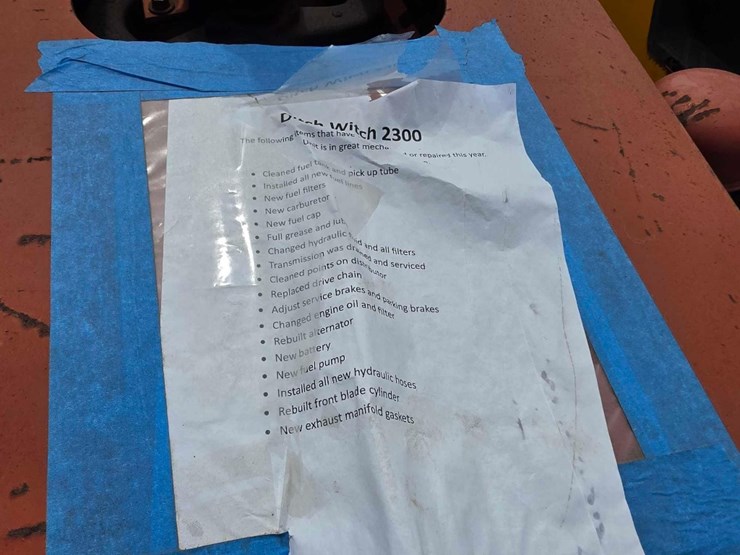 Witch 2300
The following items that have or repaired this year.
Unit is in great
• Cleaned fuel tank and pick up tube
• Installed all new fuel lines
• New fuel filters
• New carburetor
• New fuel cap
• Full grease and lube
• Changed hydraulic fluid and all filters
• Transmission was drained and serviced
• Cleaned points on distributor
• Replaced drive chain
• Adjust service brakes and parking brakes
• Changed engine oil and filter
• Rebuilt alternator
• New battery
• New fuel pump
• Installed all new hydraulic hoses
• Rebuilt front blade cylinder
• New exhaust manifold gaskets